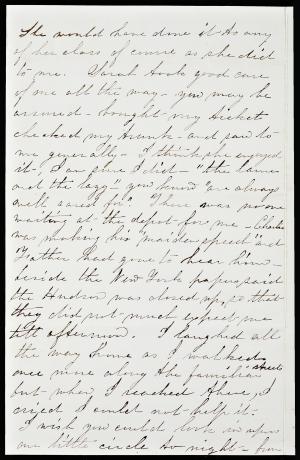 She would have done it to any
of her class of course as she did
to me. Sarah took good care
of me all the way - you may be
assured - bought my ticket
checked my trunk - and saw to
me generally - I think she enjoyed
it, I am sure I did - "the lame
and the lazy" - you know "are always
well cared for". There was no one
waiting at the depot for me - Charles
was making his "maiden speech" and
Father had gone to hear him -
beside the New York papers said
the Hudson was closed up, so that
they did not much expect me
till afternoon. I laughed all
the way home as I walked
once more along the familiar streets
but when I reached there, I
cried I could not help it.
I wish you could look in upon
our little circle to night -